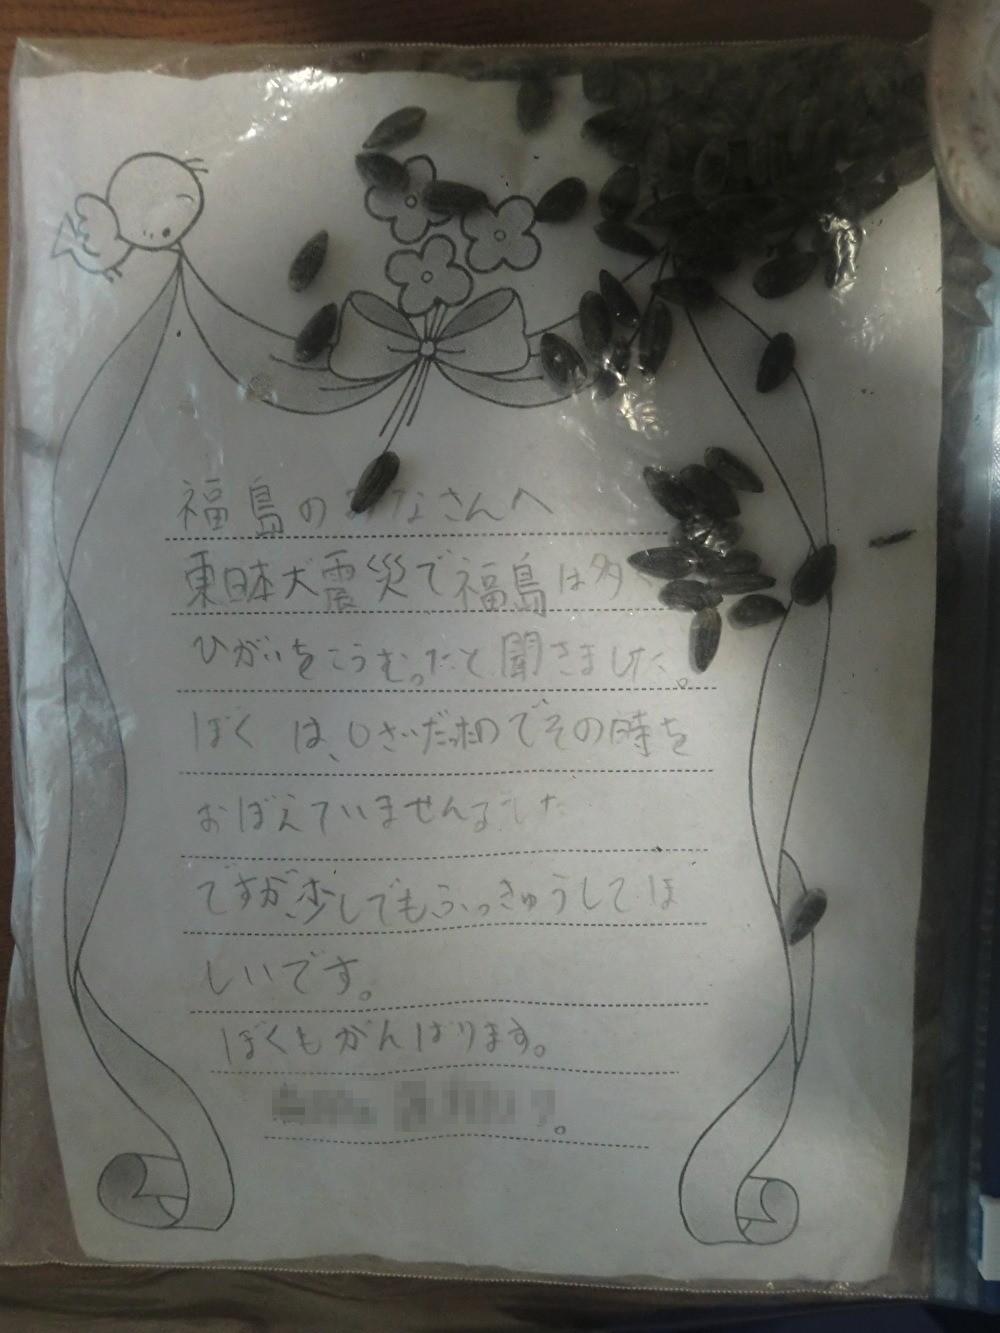 福島のみなさんへ
東日本大震災で福島は多
ひがいをこうむったと聞きました。
ぼくは、でその時を
おぼえていませんでした
ですが、少しでもふっきゅうしてほ
しいです。
ぼくもがんばります。